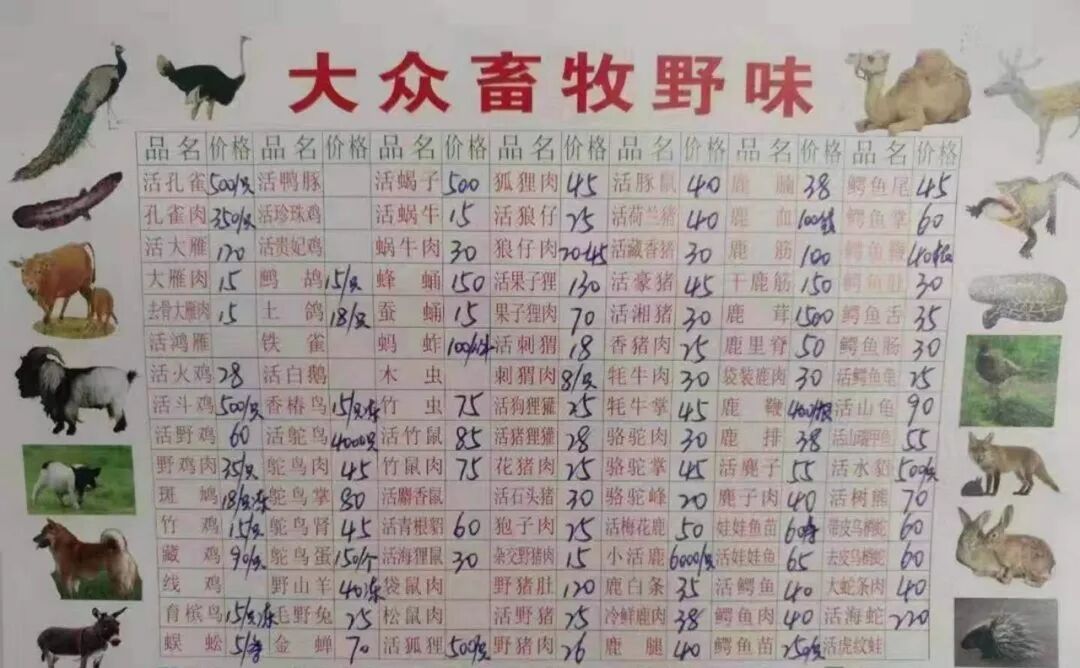 大众畜牧野味
品名 价格 品名 价格 品名 价格 品名 价格 品名 价格 品名 价格 品名 价格
活孔雀 500/只 活鸭豚 活蝎子 500 狐狸肉 45 活豚鼠 40 鹿腩 38 鳄鱼尾 45
孔雀肉 350/只 活珍珠鸡 活蜗牛 15 活狼仔 25 活荷兰猪 40 鹿血 鳄鱼掌 60
活大雁 120 活贵妃鸡 蜗牛肉 30 狼仔肉 20-45 活藏香猪 30 鹿筋 100 鳄鱼鞭
大雁肉 15 鹧鸪 15/只 蜂蛹 150 活果子狸 130 活豪猪 45 干鹿筋 150 鳄鱼肚 30
去骨大雁肉 15 土鸽 18/只 蚕蛹 15 果子狸肉 70 活湘猪 30 鹿茸 1500 鳄鱼舌 35
活鸿雁 铁雀 蚂蚱 活刺猬 18 香猪肉 25 鹿里脊 50 鳄鱼肠 30
活火鸡 28 活白鹅 木虫 刺猬肉 8/只 牦牛肉 30 袋装鹿肉 30 活鳄鱼龟 25
活斗鸡 500/只 香椿鸟 15/只冻 竹虫 75 活狗狸獾 25 牦牛掌 45 鹿鞭 活山龟 90
活野鸡 60 活鸵鸟 4000只 活竹鼠 85 活猪狸獾 28 骆驼肉 30 鹿排 38 55
野鸡肉 35/只 鸵鸟肉 45 竹鼠肉 75 花猪肉 25 骆驼掌 45 活麂子 55 活水貂 500/只
斑鸠 18/只冻 鸵鸟掌 80 活麝香鼠 活石头猪 30 骆驼峰 20 麂子肉 40 活树熊 70
竹鸡 15/只 鸵鸟肾 45 活青根貂 60 狍子肉 25 活梅花鹿 50 娃娃鱼苗 带皮乌梢蛇 60
藏鸡 90/只 鸵鸟蛋 150/个 活海狸鼠 30 杂交野猪肉 15 小活鹿 6000/只 活娃娃鱼 65 去皮乌梢蛇 60
线鸡 野山羊 40冻 袋鼠肉 野猪肚 120 鹿白条 35 活鳄鱼 40 大蛇条肉 40
育槟鸟 15/只冻 毛野兔 25 松鼠肉 活野猪 25 冷鲜鹿肉 38 鳄鱼肉 40 活海蛇 220
蜈蚣 金蝉 70 活狐狸 500/只 野猪肉 26 鹿腿 40 鳄鱼苗 250/只 活虎纹蛙